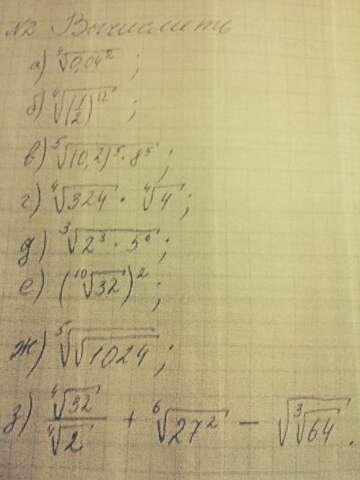 №2 Вычислить
а) ⁴√0,04² ;
б) ⁴√(1/2)¹² ;
в) ⁵√(0,2)⁵ · 8⁵ ;
г) ⁴√324 · ⁴√4 ;
д) ³√2³ · 5⁶ ;
е) (¹⁰√32)² ;
ж) ⁵√√1024 ;
з) ⁴√32 / ⁴√2 + ⁶√27² − √³√64 .